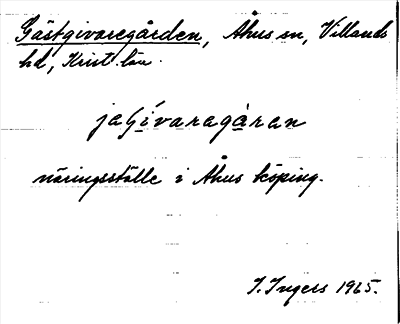 Gästgivaregården, Åhus sn, Villands
hd, Krist. län.
näringsställe i Åhus köping.
I. Ingers 1965.